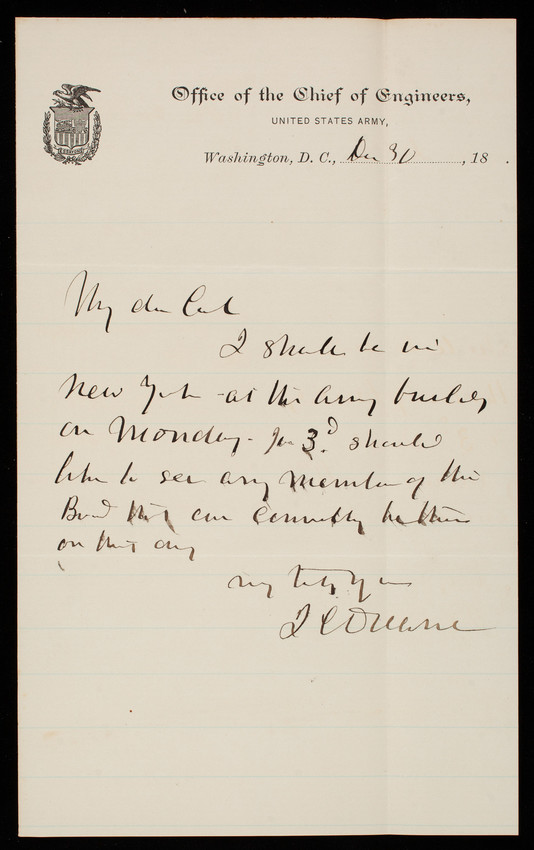 Office of the Chief of Engineers,
UNITED STATES ARMY,
Washington, D. C., Dec 30, 18 .
My dear Col
I shall be in
New York - at the Army building
on Monday - Jan 3d. should
like to see any member of the
Board that can convently be there
on that day
very truly yours